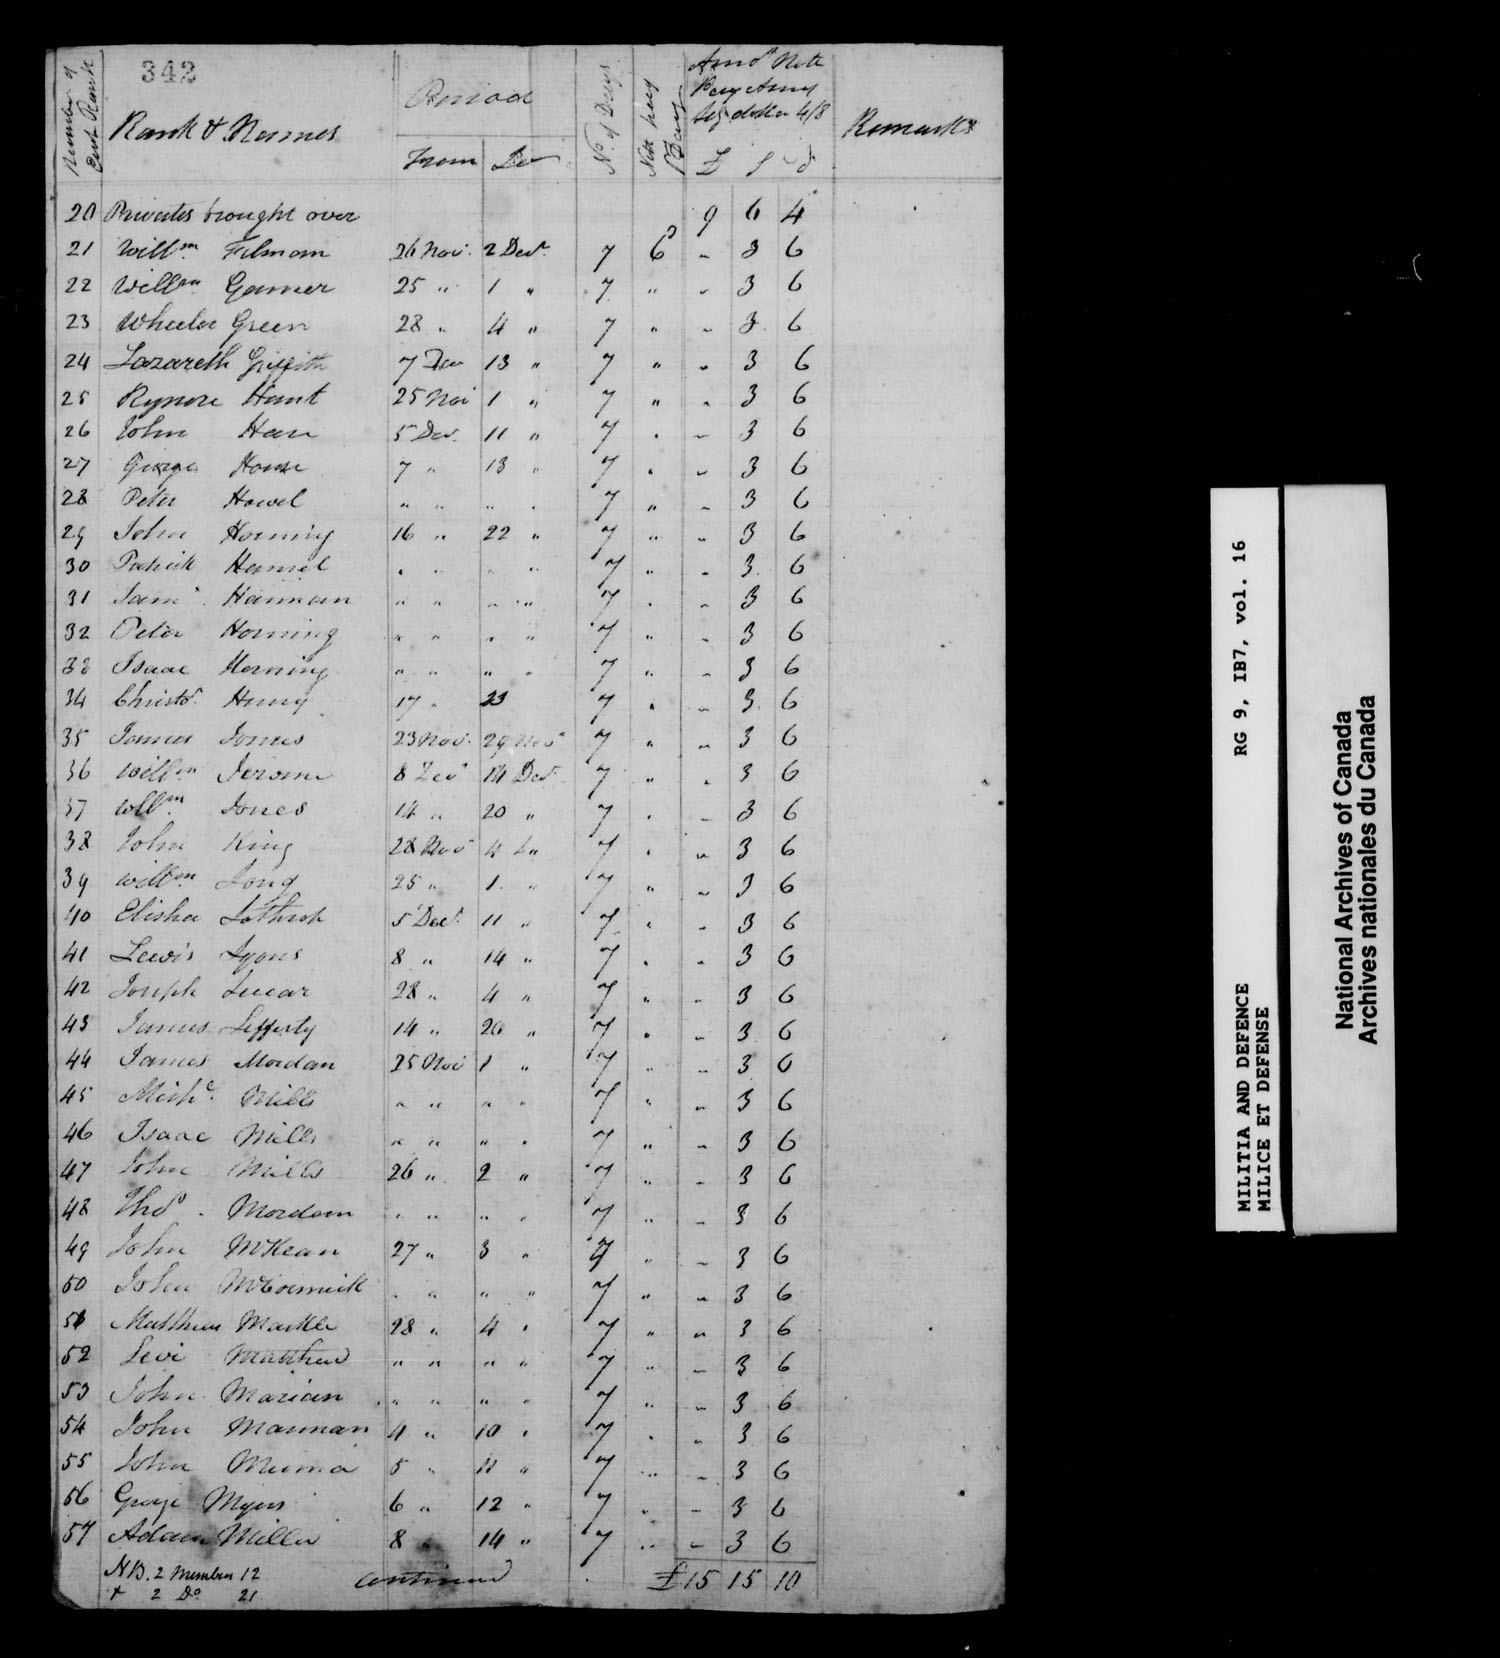 342
Number of Each Rank
Rank & Names
Period
From To
No. of Days
Nett pay Day
Amot. Nett Pay Army Sty dollar 4/8
£ S d
Remarks
20 Privates brought over 9 6 4
21 Willm. Filman 26 Nov. 2 Decr. 7 6d - 3 6
22 Willm Garner 25 " 1 " 7 " - 3 6
23 Wheeler Green 28 " 4 " 7 " - 3 6
24 Lazareth Griffith 7 Dec 13 " 7 " - 3 6
25 Rynore Hunt 25 Nov 1 " 7 " - 3 6
26 John Hare 5 Dec. 11 " 7 " - 3 6
27 George House 7 " 13 " 7 " - 3 6
28 Peter Howel " " " " 7 " - 3 6
29 John Horning 16 " 22 " 7 " - 3 6
30 Patrick Hamil " " " " 7 " - 3 6
31 Saml. Hanman " " " " 7 " - 3 6
32 Peter Horning " " " " 7 " - 3 6
33 Isaac Horning " " " " 7 " - 3 6
34 Christr. Henry 17 " 23 7 " - 3 6
35 James Jones 23 Nov. 29 Novr 7 " - 3 6
36 Willm Jerome 8 Decr 14 Decr 7 " - 3 6
37 Willm Jones 14 " 20 " 7 " - 3 6
38 John King 28 Nov 4 " 7 " - 3 6
39 Willm Long 25 " 1 " 7 " - 3 6
40 Elisha Lothrop 5 Decr. 11 " 7 " - 3 6
41 Lewis Lyons 8 " 14 " 7 " - 3 6
42 Joseph Lucar 28 " 4 " 7 " - 3 6
43 James Lefferty 14 " 20 " 7 " - 3 6
44 James Mordan 25 Nov 1 " 7 " - 3 6
45 Michl. Mills " " " " 7 " - 3 6
46 Isaac Mills " " " " 7 " - 3 6
47 John Mills 26 " 2 " 7 " - 3 6
48 Thos. Mordem " " " " 7 " - 3 6
49 John McKean 27 " 3 " 7 " - 3 6
50 John McCormick " " " " 7 " - 3 6
51 Matthew Markle 28 " 4 " 7 " - 3 6
52 Levi Matthew " " " " 7 " - 3 6
53 John Marian " " " " 7 " - 3 6
54 John Manman 4 " 10 " 7 " - 3 6
55 John Muma 5 " 11 " 7 " - 3 6
56 George Myers 6 " 12 " 7 " - 3 6
57 Adam Miller 8 " 14 " 7 " - 3 6
NB. 2 Member 12 continued £15 15 10
+ 2 Do 21
MILITIA AND DEFENCE RG 9, IB7, vol. 16
MILICE ET DEFENSE
National Archives of Canada
Archives nationales du Canada